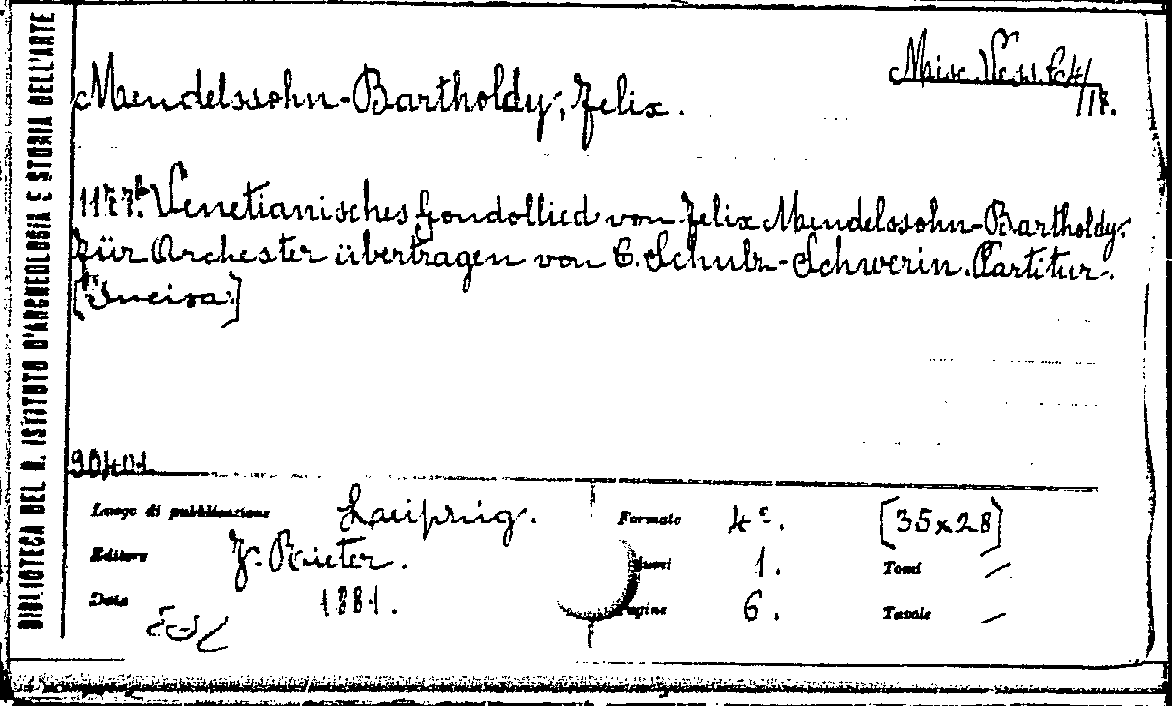 BIBLIOTECA DEL R. ISTITUTO D'ARCHEOLOGIA E STORIA DELL'ARTE
Misc. Vess.
/18.
Mendelssohn-Bartholdy, Felix.
Venetianisches Gondollied von Felix Mendelssohn-Bartholdy.
Für Orchester übertragen von C. Schulz-Schwerin. Partitur.
[Incisa]
90401
Luogo di pubblicazione Leipzig. Formato 4°. [35x28]
Editore J. Rieter. Numeri 1. Tomi /
Data 1881. Pagine 6. Tavole /